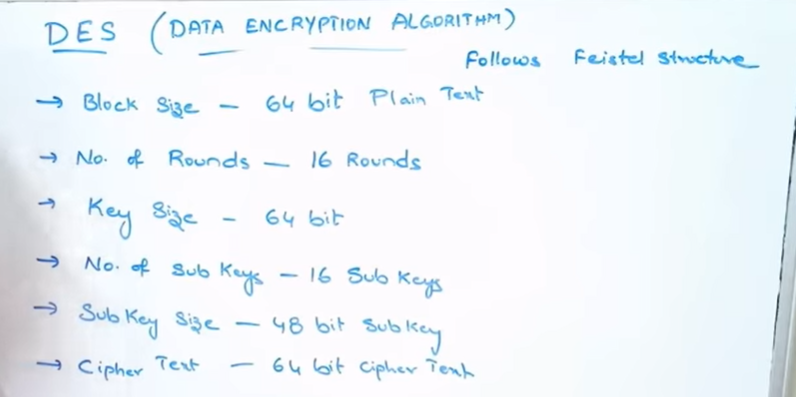 DES (DATA ENCRYPTION ALGORITHM)
Follows Feistel Structure
→ Block Size — 64 bit Plain Text
→ No. of Rounds — 16 Rounds
→ Key Size - 64 bit
→ No. of Sub Keys — 16 Sub Keys
→ Sub Key Size — 48 bit Sub Key
→ Cipher Text — 64 bit Cipher Text